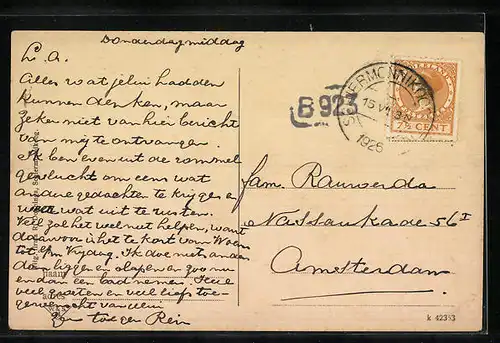 Donderdagmiddag
L. A.
Alles wat jelui hadden
kunnen denken, maar
zeker niet van hier bericht
van mij te ontvangen.
Ik ben even uit de rommel
gevlucht om eens wat
andere gedachten te krijgen
wat uit te rusten.
Veel zal het wel niet helpen, want
daarvoor is het te kort van Woens
tot Vrijdag. Ik doe niets anders
dan liggen en slapen en zoo nu
en dan een bad nemen.
veel groeten en veel liefs toe-
gewenscht van
Rein
SCHIERMONNIKOOG
15 VII
1926
NEDERLAND
7½ CENT
B 923
Fam. Rauwerda
Nassaukade 56 I
Amsterdam
k 42353